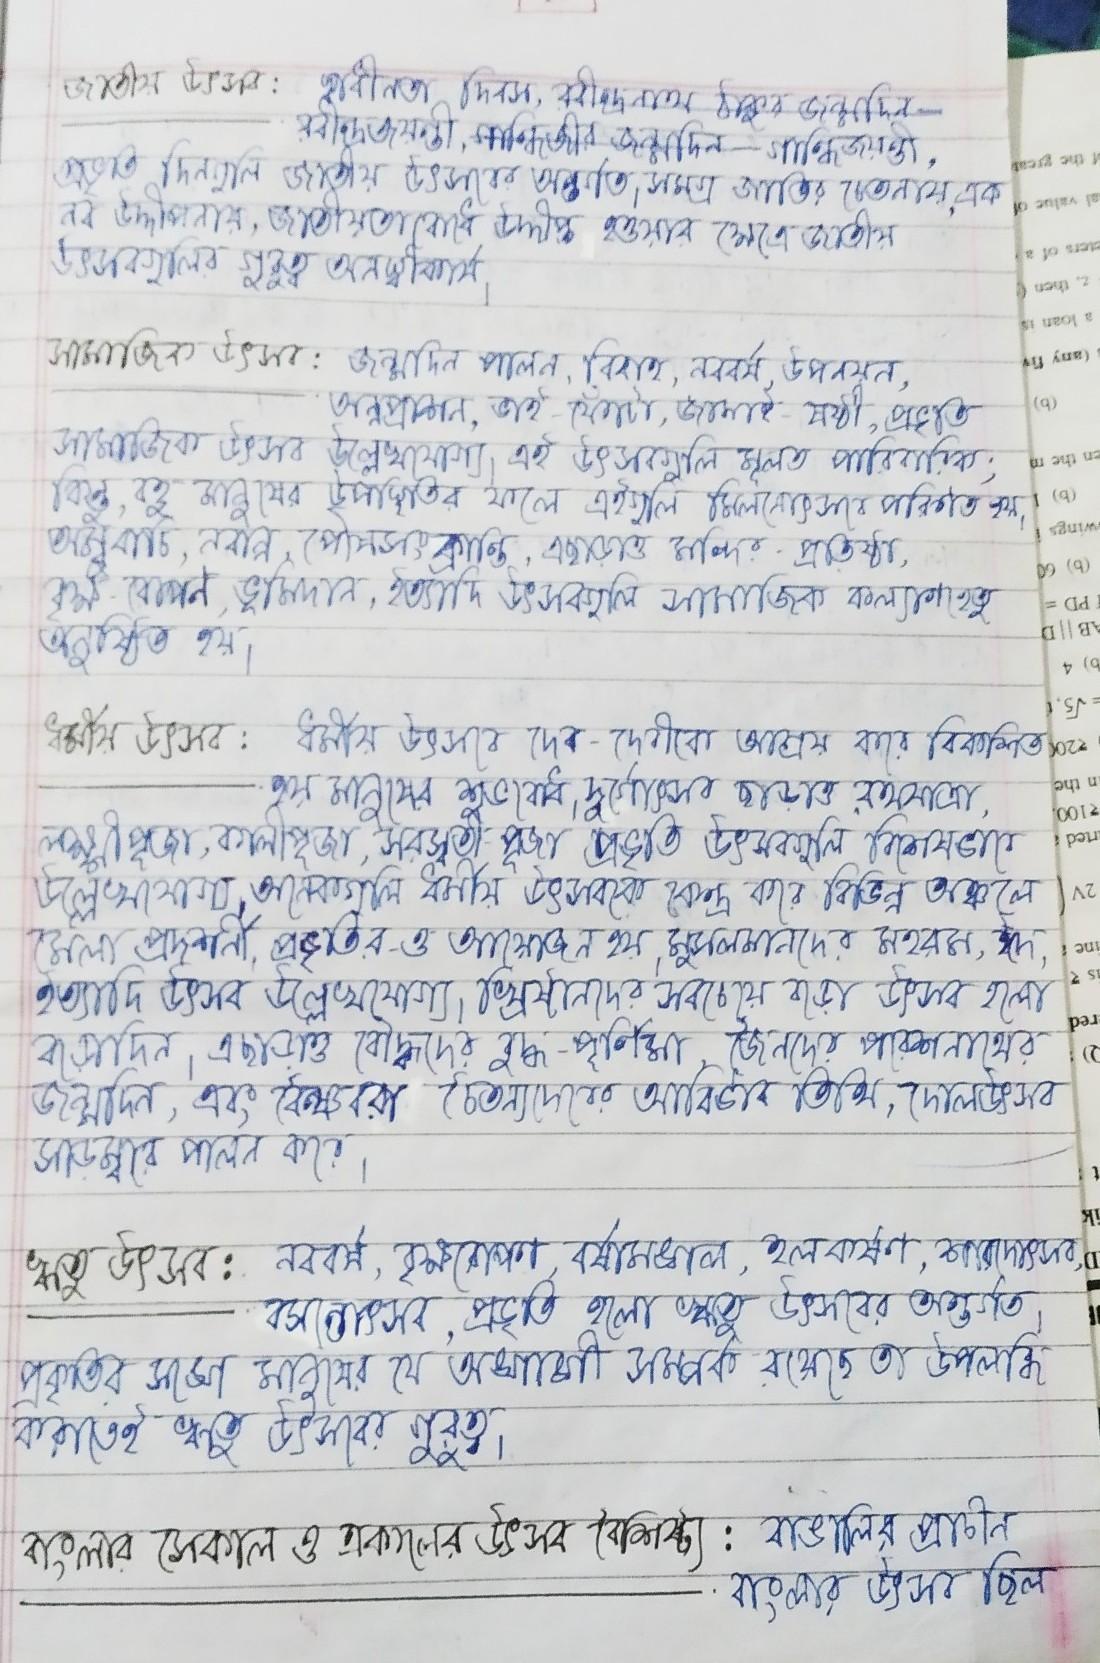 জাতীয় উৎসব: স্বাধীনতা দিবস, রবীন্দ্রনাথ ঠাকুর জন্মদিন—
রবীন্দ্রজয়ন্তী, গান্ধিজীর জন্মদিন — গান্ধিজয়ন্তী,
প্রভৃতি দিনগুলি জাতীয় উৎসবের অন্তর্গত। সমগ্র জাতির চেতনায়, এক
নব উদ্দীপনায়, জাতীয়তাবোধে উদ্দীপ্ত হওয়ার ক্ষেত্রে জাতীয়
উৎসবগুলির গুরুত্ব অনস্বীকার্য।
সামাজিক উৎসব: জন্মদিন পালন, বিবাহ, নববর্ষ, উপনয়ন,
অন্নপ্রাশন, ভাই-ফোঁটা, জামাই-ষষ্ঠী, প্রভৃতি
সামাজিক উৎসব উল্লেখযোগ্য। এই উৎসবগুলি মূলত পারিবারিক;
কিন্তু, বহু মানুষের উপস্থিতির ফলে এইগুলি মিলনোৎসবে পরিণত হয়।
অম্বুবাচি, নবান্ন, পৌষসংক্রান্তি, এছাড়াও মন্দির-প্রতিষ্ঠা,
বৃক্ষ-রোপণ, ভূমিদান, ইত্যাদি উৎসবগুলি সামাজিক কল্যাণহেতু
অনুষ্ঠিত হয়।
ধর্মীয় উৎসব: ধর্মীয় উৎসবে দেব-দেবীকে আশ্রয় করে বিকশিত
হয় মানুষের শুভবোধ। দুর্গোৎসব ছাড়াও রথযাত্রা,
লক্ষ্মীপূজা, কালীপূজা, সরস্বতী-পূজা প্রভৃতি উৎসবগুলি বিশেষভাবে
উল্লেখযোগ্য। অনেকগুলি ধর্মীয় উৎসবকে কেন্দ্র করে বিভিন্ন অঞ্চলে
মেলা প্রদর্শনী, প্রভৃতির-ও আয়োজন হয়। মুসলমানদের মহরম, ঈদ,
ইত্যাদি উৎসব উল্লেখযোগ্য। খ্রিষ্টানদের সবচেয়ে বড়ো উৎসব হলো
বড়োদিন। এছাড়াও বৌদ্ধদের বুদ্ধ-পূর্ণিমা, জৈনদের পরেশনাথের
জন্মদিন, এবং বৈষ্ণবরা চৈতন্যদেবের আবির্ভাব তিথি, দোলউৎসব
সাড়ম্বরে পালন করে।
ঋতু উৎসব: নববর্ষ, বৃক্ষরোপণ, বর্ষামঙ্গল, হলকর্ষণ, শারদোৎসব,
বসন্তোৎসব, প্রভৃতি হলো ঋতু উৎসবের অন্তর্গত।
প্রকৃতির সঙ্গে মানুষের যে অঙ্গাঙ্গী সম্পর্ক রয়েছে তা উপলব্ধি
করাতেই ঋতু উৎসবের গুরুত্ব।
বাংলার সেকাল ও একালের উৎসব বৈশিষ্ট্য: বাঙালির প্রাচীন
বাংলার উৎসব ছিল